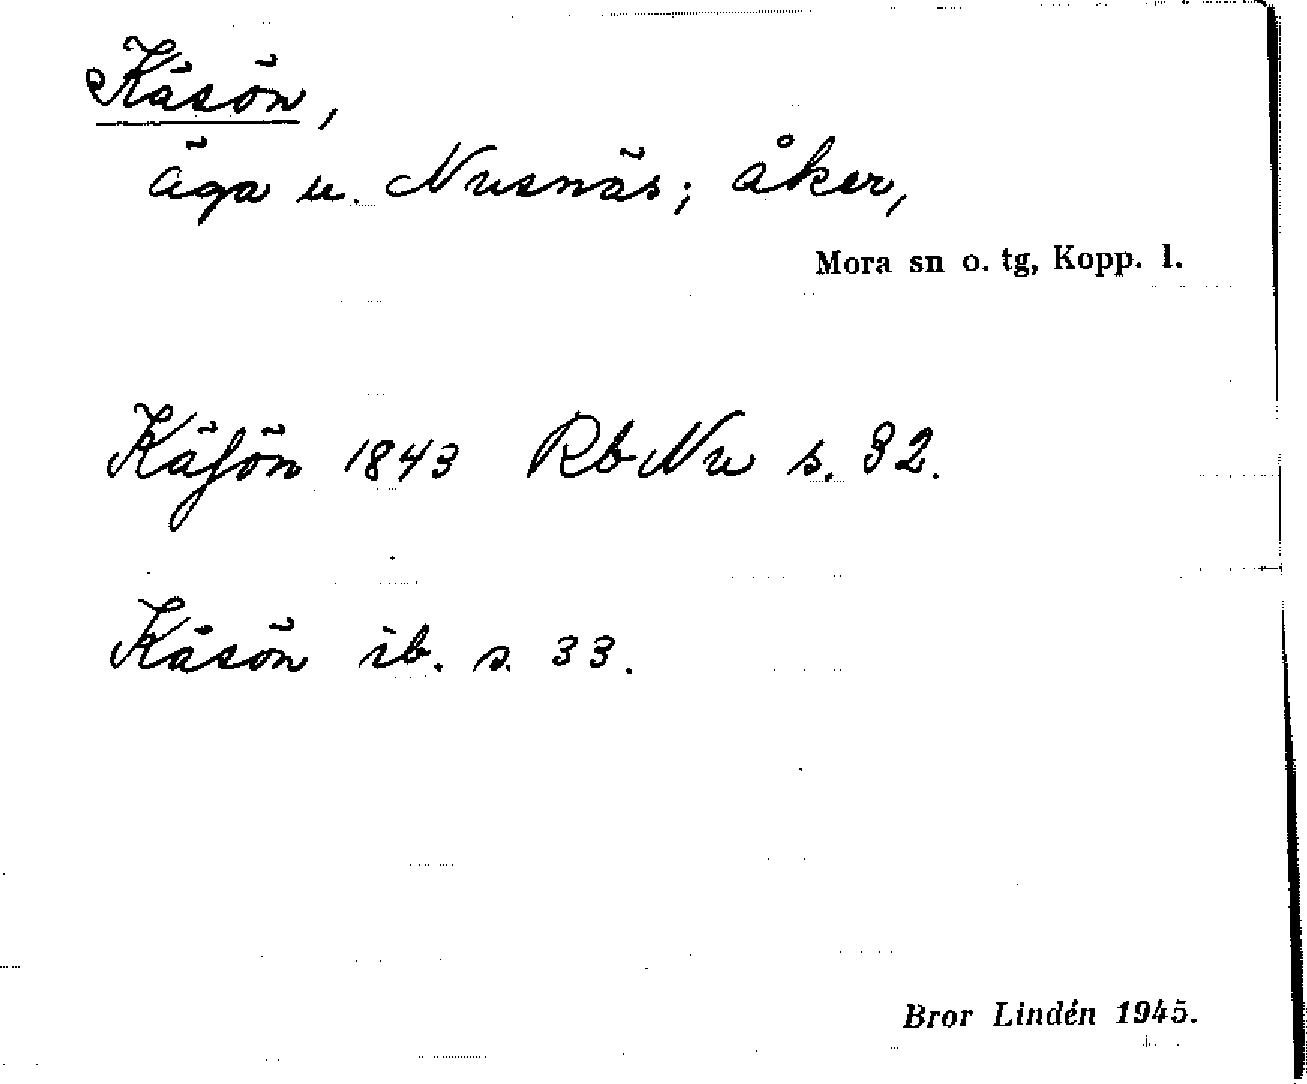 Käsön,
äga u. Nusnäs; åker,
Mora sn o. tg, Kopp. l.
Käſön 1843 Rb Nu s. 32.
Kåsön ib. s. 33.
Bror Lindén 1945.